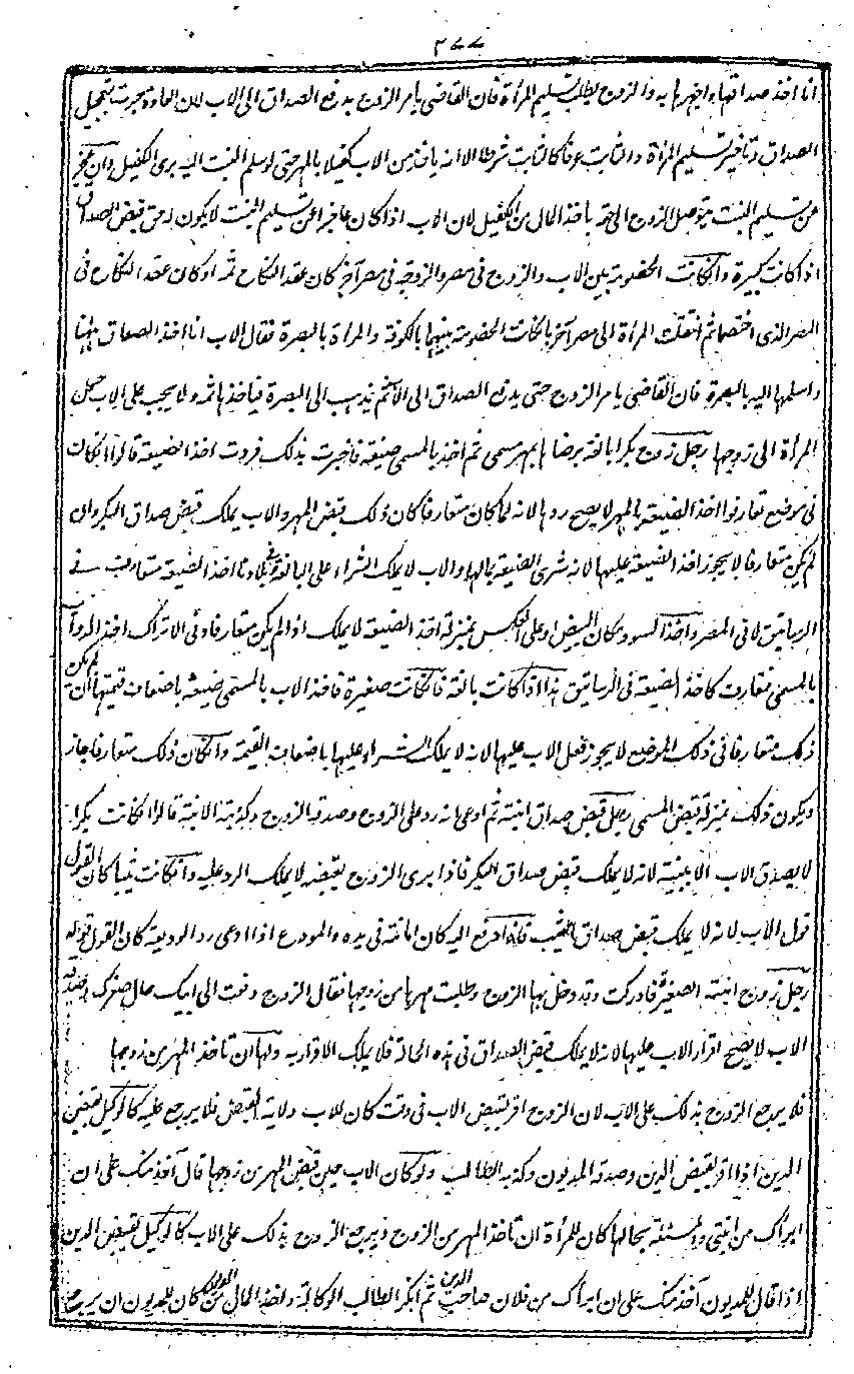 ٣٧٧
انا اخذ صداقها واجهزها به والزوج يطلب تسليم المرأة فان القاضى يأمر الزوج بدفع الصداق الى الاب لان العادة جرت بتعجيل
الصداق وتأخير تسليم المرأة والثابت عرفا كالثابت شرطا الا انه ياخذ من الاب كفيلا بالمهر حتى لو سلم البنت اليه برئ الكفيل وان عجز
عن تسليم البنت يتوصل الزوج الى حقه باخذ المال من الكفيل لان الاب اذا كان عاجزا عن تسليم البنت لا يكون له حق قبض الصداق
اذا كانت كبيرة وان كانت الخصومة بين الاب والزوج فى مصر والزوجة فى مصر آخر كان عقد النكاح ثمه او كان عقد النكاح فى
المصر الذى اختصما ثم انتقلت المرأة الى مصر آخر بان كانت الخصومة بينهما بالكوفة والمرأة بالبصرة فقال الاب انا اخذ الصداق ههنا
واسلمها اليه بالبصرة فان القاضى يامر الزوج حتى يدفع الصداق الى الاب ثم يذهب الى البصرة فياخذها ثمه ولا يجب على الاب حمل
المرأة الى زوجها رجل زوج بكرا بالغة برضاها بمهر مسمى ثم اخذ بالمسمى ضيعة فاخبرت بذلك فردت اخذ الضيعة قالوا ان كانت
فى موضع تعارفوا اخذ الضيعة بالمهر لا يصح ردها لانه لما كان متعارفا كان ذلك قبض المهر والاب يملك قبض صداق البكر وان
لم يكن متعارفا لا يجوز اخذ الضيعة عليها لانه شرى الضيعة بمالها والاب لا يملك الشراء على البالغة وفى بلادنا اخذ الضيعة متعارف فى
الرساتيق لا فى المصر واخذ السود مكان البيض او على العكس بمنزلة اخذ الضيعة لا يملك اذا لم يكن متعارفا وفى الاتراك اخذ الدواب
بالمسمى متعارف كاخذ الضيعة فى الرساتيق هذا اذا كانت بالغة فان كانت صغيرة فاخذ الاب بالمسمى ضيعة باضعاف قيمتها ان لم يكن
ذلك متعارفا فى ذلك الموضع لا يجوز فعل الاب عليها لانه لا يملك الشراء عليها باضعاف القيمة وان كان ذلك متعارفا جاز
ويكون ذلك بمنزلة قبض المسمى رجل قبض صداق ابنته ثم ادعى انه رد على الزوج وصدقه الزوج وكذبته الابنة قالوا ان كانت بكرا
لا يصدق الاب الا ببينة لانه لا يملك قبض صداق البكر فاذا برئ الزوج بقبضه لا يملك الرد عليه وان كانت ثيبا كان القول
قول الاب لانه لا يملك قبض صداق الثيب فاذا دفع اليه كان امانة فى يده والمودع اذا ادعى رد الوديعة كان القول قوله
رجل زوج ابنته الصغيرة فادركت وقد دخل بها الزوج وطلبت مهرها من زوجها فقال الزوج دفعت الى ابيك حال صغرك وصدقه
الاب لا يصح اقرار الاب عليها لانه لا يملك قبض الصداق فى هذه الحالة فلا يملك الاقرار به ولها ان تاخذ المهر من زوجها
فلا يرجع الزوج بذلك على الاب لان الزوج اقر بقبض الاب فى وقت كان للاب ولاية القبض فلا يرجع عليه كالوكيل بقبض
الدين اذا اقر بقبض الدين وصدقه المديون وكذبه الطالب ولو كان الاب حين قبض المهر من زوجها قال آخذ منك على ان
ابرأك من ابنتى والمسئلة بحالها كان للمرأة ان تاخذ المهر من الزوج ويرجع الزوج بذلك على الاب كالوكيل بقبض الدين
اذا قال للمديون آخذ منك على ان ابرأك من فلان صاحب الدين ثم انكر الطالب الوكالة واخذ المال من كان للمديون ان يرجع